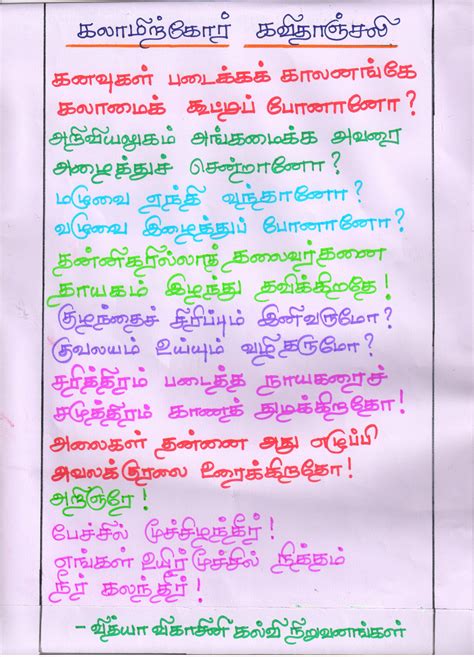 கலாமிற்கோர் கவிதாஞ்சலி
கனவுகள் படைக்கக் காலனங்கே
கலாமைக் கூட்டிப் போனானோ?
அறிவியலுகம் அங்கமைக்க அவரை
அழைத்துச் சென்றானோ?
மழுவை ஏந்தி வந்தானோ?
வழுவை இழைத்துப் போனானோ?
தன்னிகரில்லாத் தலைவர்தனை
தாயகம் இழந்து தவிக்கிறதே!
குழந்தைச் சிரிப்பும் இனிவருமோ?
குவலயம் உய்யும் வழிதருமோ?
சரித்திரம் படைத்த நாயகரைச்
சமுத்திரம் காணத் துடிக்கிறதோ!
அலைகள் தன்னை அது எழுப்பி
அவலக்குரலை உரைக்கிறதோ!
அறிஞரே!
பேச்சில் மூச்சிழந்தீர்!
எங்கள் உயிர்மூச்சில் நித்தம்
நீர் கலந்தீர்!
- வித்யா விகாசினி கல்வி நிறுவனங்கள்